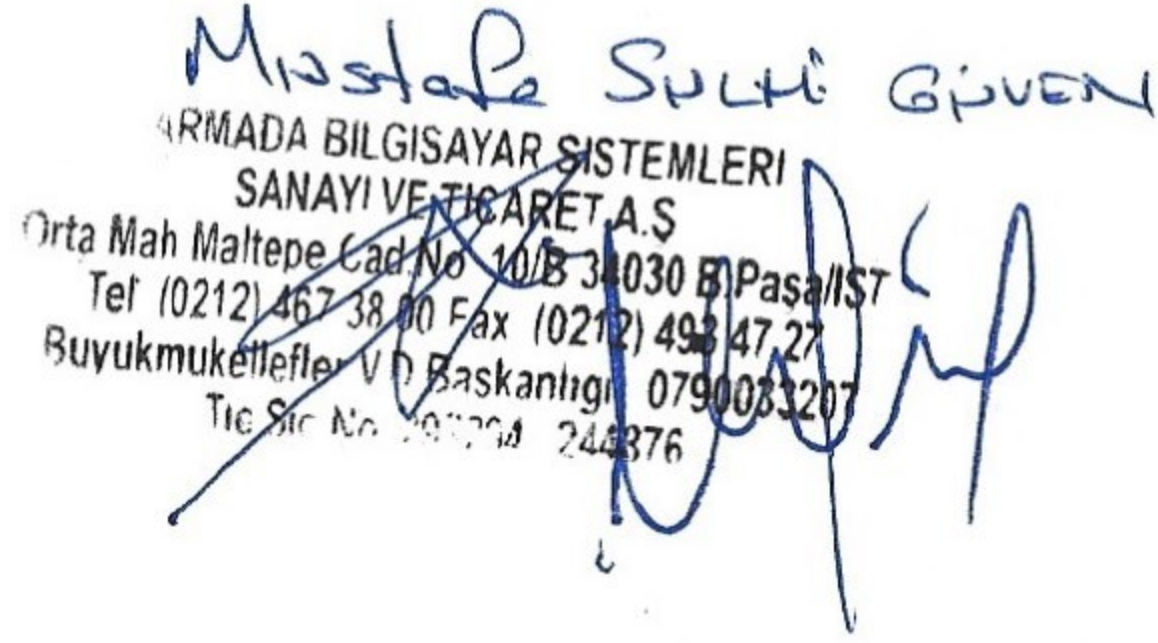 Mustafa SULHİ GÜVEN
ARMADA BILGISAYAR SISTEMLERI
SANAYI VE TICARET A.Ş
Orta Mah Maltepe Cad.No 10/B 34030 B.Paşa/IST
Tel (0212) 467 38 00 Fax (0212) 493 47 27
Buyukmukellefler V D Baskanlıgı 0790033207
Tic Sic No 244376